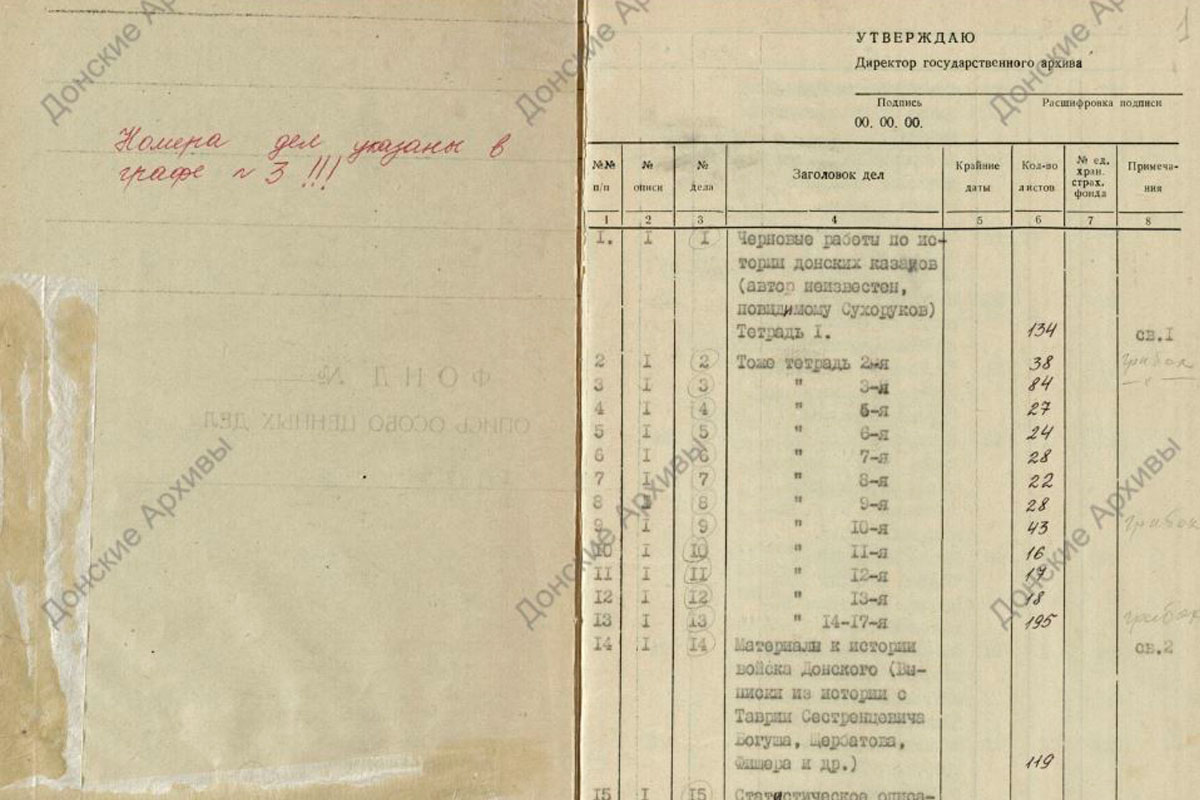 Номера дел указаны в
графе № 3 !!!
ФОНД №
ОПИСЬ ОСОБО ЦЕННЫХ ДЕЛ
1
УТВЕРЖДАЮ
Директор государственного архива
Подпись Расшифровка подписи
00. 00. 00.
№№ п/п № описи № дела Заголовок дел Крайние даты Кол-во листов № ед. хран. страх. фонда Примеча-ния
1 2 3 4 5 6 7 8
I. I I Черновые работы по ис-
тории донских казаков
(автор неизвестен,
повидимому Сухоруков)
Тетрадь I. 134 св.I
2 I 2 Тоже тетрадь 2-я 38 грибок
3 I 3 " 3-я 84 "
4 I 4 " 5-я 27
5 I 5 " 6-я 24
6 I 6 " 7-я 28
7 I 7 " 8-я 22
8 I 8 " 9-я 28
9 I 9 " 10-я 43 грибок
10 I 10 " II-я 16
II I II " 12-я 17
12 I 12 " 13-я 18
13 I 13 " 14-17-я 195 грибок
14 I 14 Материали к истории св.2
войска Донского (Вы-
писки из истории с
Таврии Сестренцевича
Богуша, Щербатова,
Фишера и др.) 119
15 I 15 Статистическое описа-
Донские Архивы
Донские Архивы
Донские Архивы
Донские Архивы
Донские Архивы
Донские Архивы